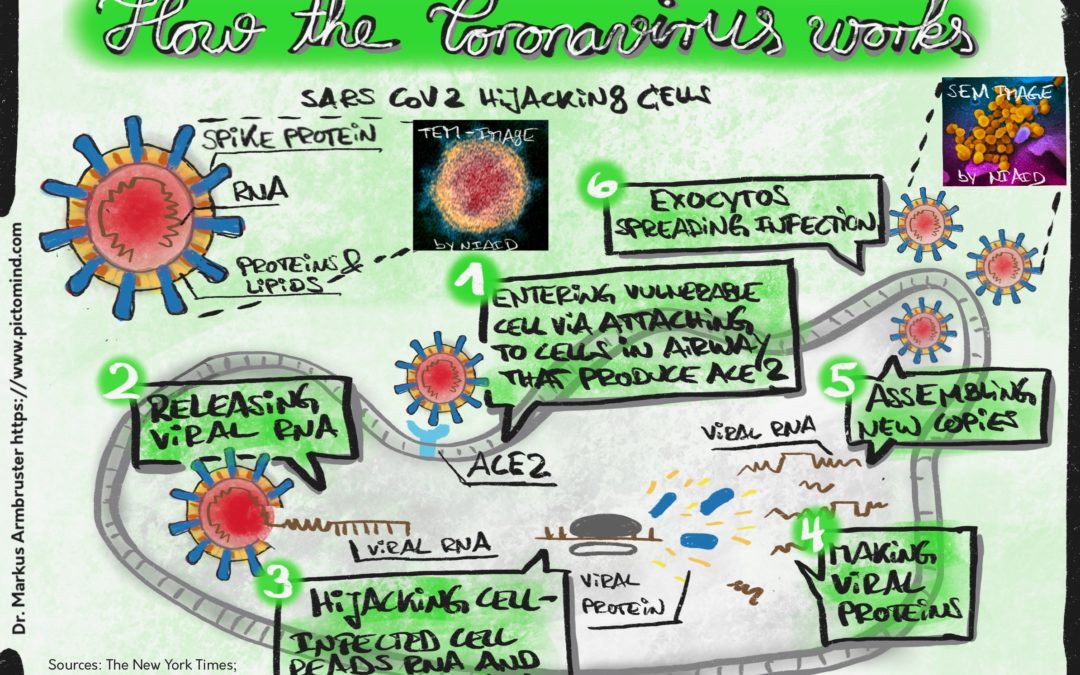 How the Coronavirus works
SARS CoV2 HiJACKING CELLS
SPIKE PROTEIN
RNA
PROTEINS &
LIPIDS
TEM-IMAGE
by NIAID
SEM IMAGE
by NIAID
1
ENTERING VULNERABLE
CELL ViA ATTACHING
TO CELLS IN AIRWAY
THAT PRODUCE ACE2
ACE2
2
RELEASING
ViRAL RNA
ViRAL RNA
3
HiJACKING CELL-
INFECTED CELL
READS RNA AND
ViRAL
PROTEIN
ViRAL RNA
4
MAKING
ViRAL
PROTEINS
5
ASSEMBLING
NEW COPiES
6
EXOCYTOS
SPREADING INFECTION
Dr. Markus Armbruster https://www.pictomind.com
Sources: The New York Times;